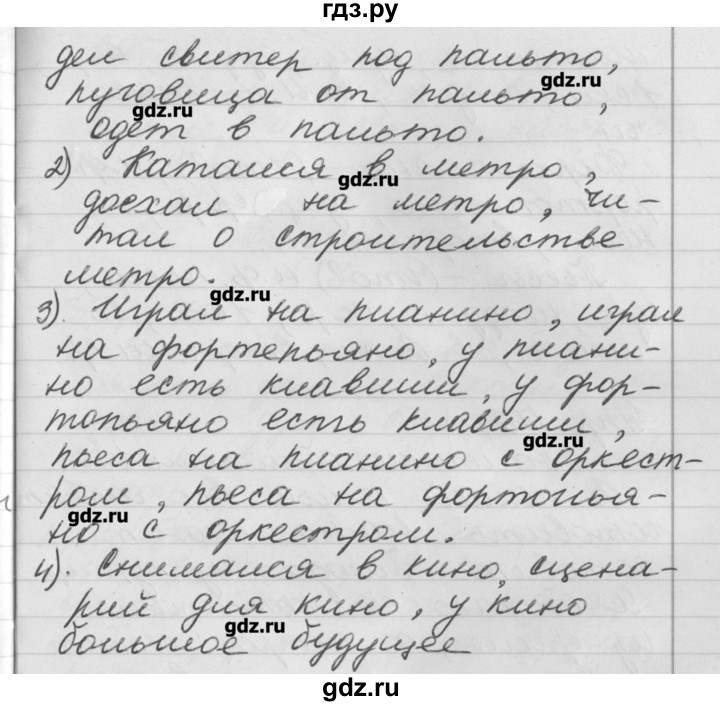 гдз.ру
дел свитер под пальто,
gdz.ru
пуговица от пальто,
gdz.ru
одет в пальто.
2) Катался в метро,
gdz.ru
доехал на метро, чи-
тал о строительстве
метро.
gdz.ru
3). Играл на пианино, играл
на фортепьяно, у пиани-
но есть клавиши, у фор-
топьяно есть клавиши,
gdz.ru
пьеса на пианино с оркест-
ром, пьеса на фортопья-
gdz.ru
но с оркестром.
4). Снимался в кино, сцена-
рий для кино, у кино
gdz.ru
большое будущее
gdz.ru